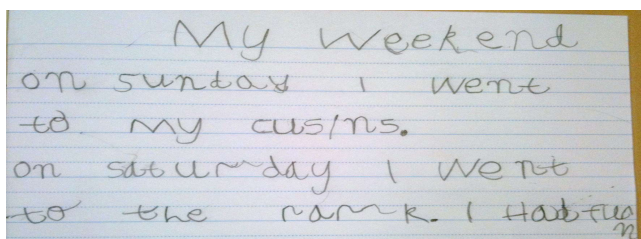 My Weekend
on sunday I went
to. my cus/ns.
on saturday I went
to the rark. I Had fun